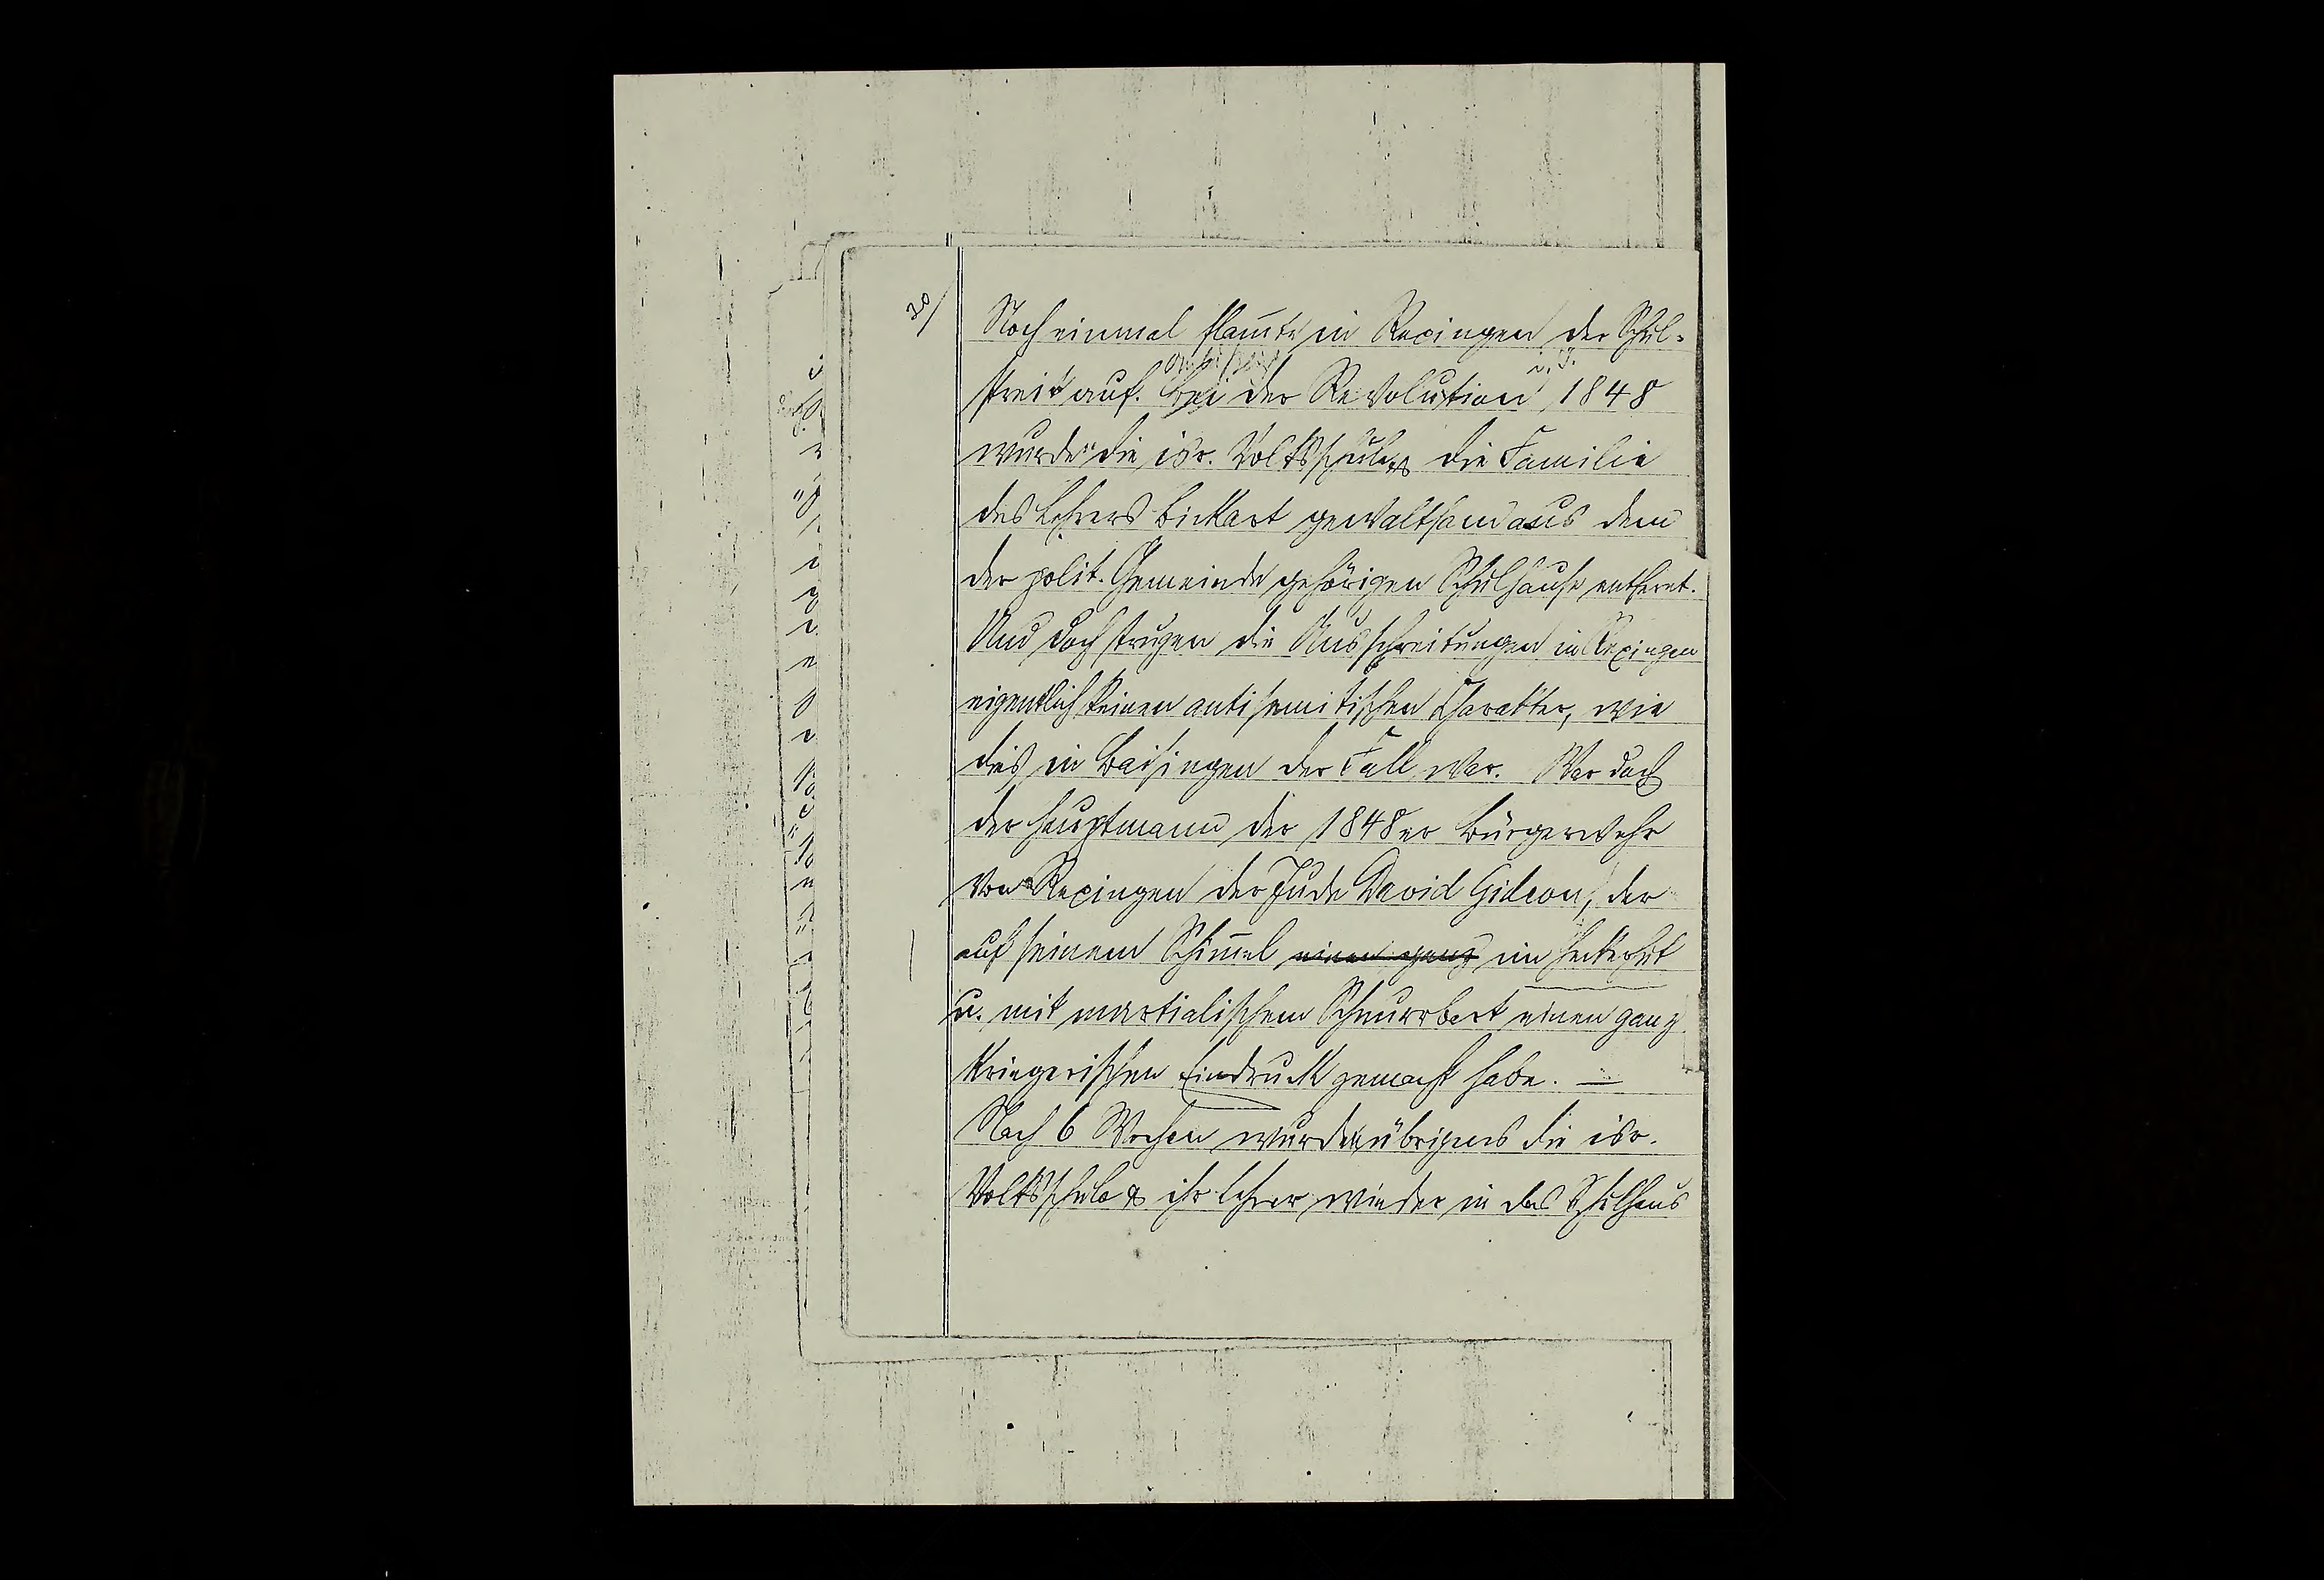 30/
Noch einmal flam̄te in Rexingen der Schul-
anläßlich i. J.
streit auf. Bei der Revolution 1848
wurde die isr. Volksschule & die Familie
des Lehrers Bickart gewaltsam aus dem
der polit. Gemeinde gehörigen Schulhause entfernt.
Und doch trugen die Ausschreitungen in Rexingen
eigentlich keinen antisemitischen Charakter, wie
dies in Baisingen der Fall war. War doch
der Hauptmann der 1848er Bürgerwehr
von Rexingen der Jude David Gideon, der
auf seinem Schim̄el einen ganz im Heckerhut
u. mit martialischem Schnurrbart einen ganz
kriegerischen Eindruck gemacht habe. —
Nach 6 Wochen wurden übrigens die isr.
Volksschule & ihr Lehrer wieder in das Schulhaus